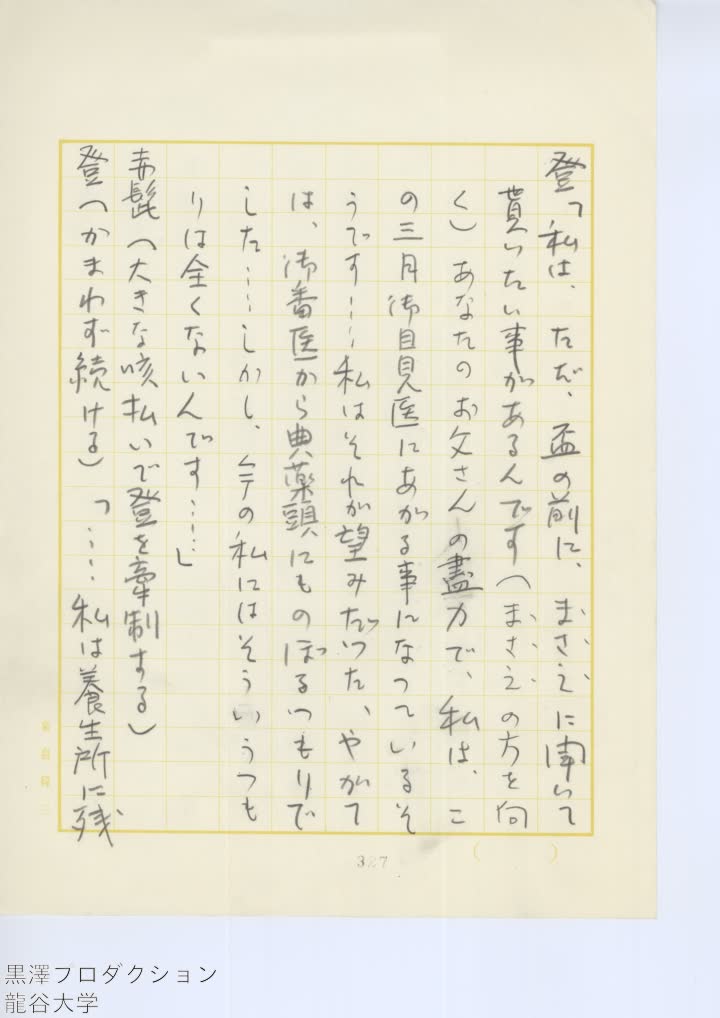 登「私は、ただ、盃の前に、まさえに聞いて
貰いたい事があるんです（まさえの方を向
く）あなたのお父さんの盡力で、私は、こ
の三月御目見医にあがる事になっているそ
うです……私はそれが望みだった、やがて
は、御番医から典薬頭にものぼるつもりで
した……しかし、今の私にはそういうつも
りは全くないんです……」
赤髭（大きな咳払いで登を牽制する）
登（かまわず続ける）「……私は養生所に残
327
黒澤プロダクション
龍谷大学